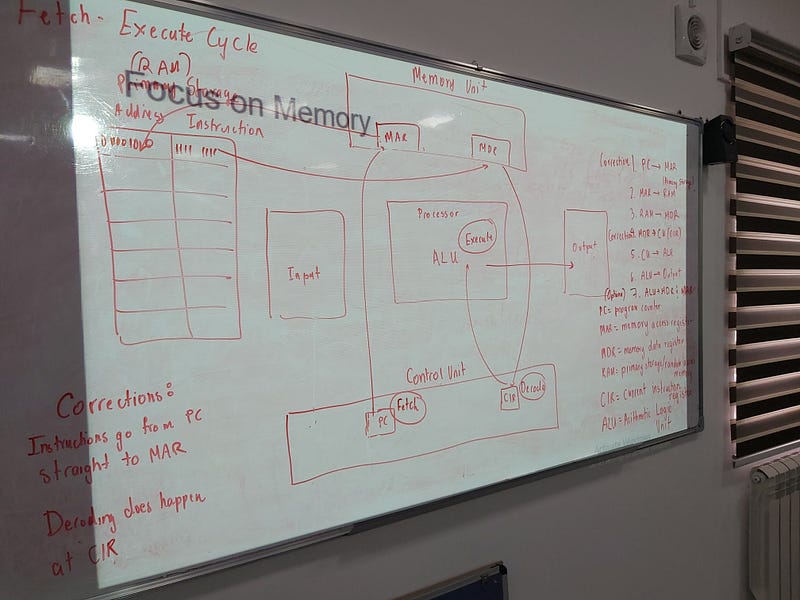 Fetch - Execute Cycle
(RAM)
Primary Storage
Focus on Memory
Address
Instruction
1111 1111
Memory Unit
MAR
MDR
Input
Processor
Execute
ALU
Output
Control Unit
PC
Fetch
CIR
Decode
Corrections:
Instructions go from PC
straight to MAR
Decoding does happen
at CIR
Correction 1. PC → MAR
(Primary Storage)
2. MAR → RAM
3. RAM → MDR
Correction 4. MDR → CU (CIR)
5. CU → ALU
6. ALU → Output
(Optional) 7. ALU → MDR & MAR
PC = program counter
MAR = memory access register
MDR = memory data register
RAM = primary storage/random access
memory
CIR = Current instruction
register
ALU = Arithmetic Logic
Unit